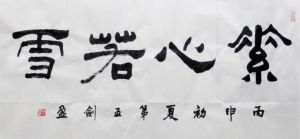 素心若雪
丙申初夏第五剑盈